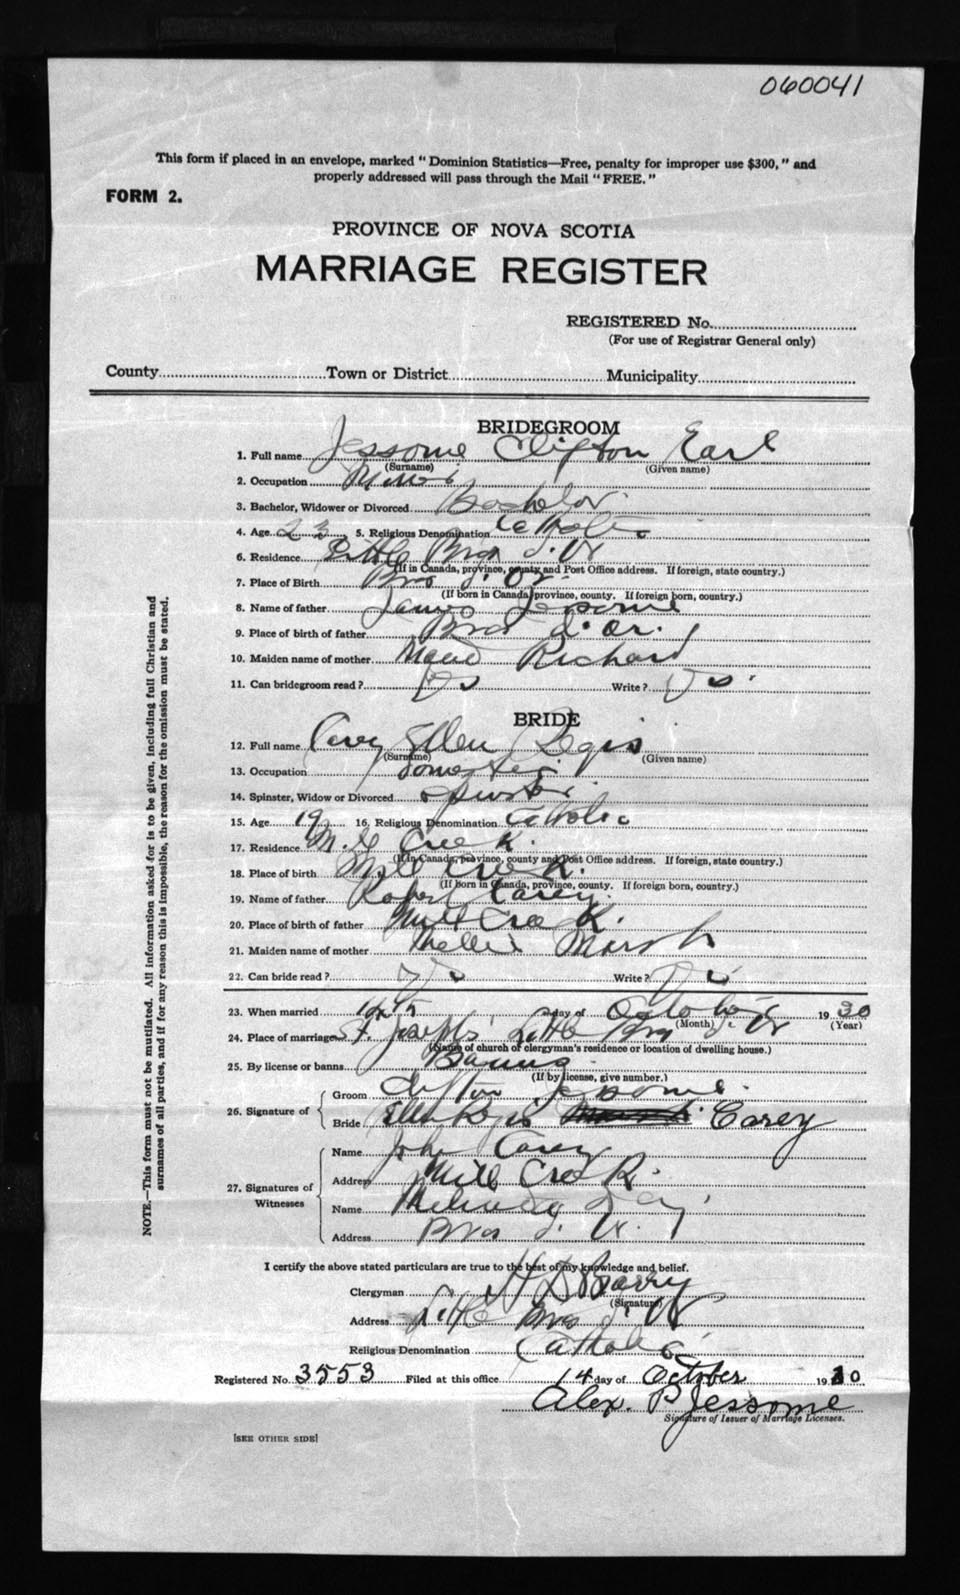 060041
This form if placed in an envelope, marked "Dominion Statistics—Free, penalty for improper use $300," and
properly addressed will pass through the Mail "FREE."
FORM 2.
PROVINCE OF NOVA SCOTIA
MARRIAGE REGISTER
REGISTERED No.
(For use of Registrar General only)
County Town or District Municipality
BRIDEGROOM
1. Full name Jessome Clifton Earl
(Surname) (Given name)
2. Occupation Miner
3. Bachelor, Widower or Divorced Bachelor
4. Age 23 5. Religious Denomination Catholic
6. Residence Little Bras d'Or
(If in Canada, province, county and Post Office address. If foreign, state country.)
7. Place of Birth Bras d'Or.
(If born in Canada, province, county. If foreign born, country.)
8. Name of father James Jessome
9. Place of birth of father Bras d'Or.
10. Maiden name of mother Maud Richard
11. Can bridegroom read? Yes Write? Yes
BRIDE
12. Full name Carey Ellen Regis
(Surname) (Given name)
13. Occupation Domestic
14. Spinster, Widow or Divorced Spinster
15. Age 19 16. Religious Denomination Catholic
17. Residence Mill Creek.
(If in Canada, province, county and Post Office address. If foreign, state country.)
18. Place of birth Mill Creek.
(If born in Canada, province, county. If foreign born, country.)
19. Name of father Robert Carey
20. Place of birth of father Mill Creek.
21. Maiden name of mother Nellie Marsh
22. Can bride read? Yes Write? Yes
23. When married day of October 1930
(Month) (Year)
24. Place of marriage St. Joseph's Little Bras d'Or
(Name of church or clergyman's residence or location of dwelling house.)
25. By license or banns Banns
(If by license, give number.)
26. Signature of Groom Clifton Jessome.
Bride Ellen Regis Carey
27. Signatures of Witnesses Name John Carey
Address Mill Creek.
Name
Address Bras d'Or.
I certify the above stated particulars are true to the best of my knowledge and belief.
Clergyman H D Barry
(Signature)
Address Little Bras d'Or
Religious Denomination Catholic
Registered No. 3553 Filed at this office 14 day of October 1930
Alex. P Jessome
Signature of Issuer of Marriage Licenses.
[SEE OTHER SIDE]
NOTE.—This form must not be mutilated. All information asked for is to be given, including full Christian and
surnames of all parties, and if for any reason this is impossible, the reason for the omission must be stated.